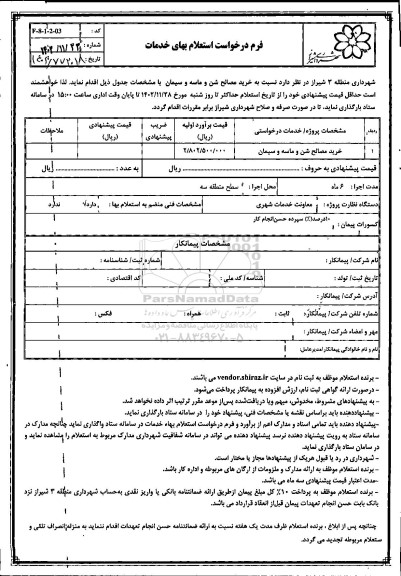 کد: F-8-1-2-03
شماره:
فرم درخواست استعلام بهای خدمات
شهرداری منطقه ۳ شیراز در نظر دارد نسبت به خرید مصالح شن و ماسه و سیمان با مشخصات جدول ذیل اقدام نماید. لذا خواهشمند
است حداقل قیمت پیشنهادی خود را از تاریخ استعلام حداکثر تا روز شنبه مورخ ۱۴۰۲/۱۱/۲۸ تا پایان وقت اداری ساعت ۱۵:۰۰ در سامانه
ستاد بارگذاری نماید، تا در صورت صرفه و صلاح شهرداری شیراز برابر مقررات اقدام گردد.
ردیف مشخصات پروژه/ خدمات درخواستی قیمت برآورد اولیه (ریال) ضریب پیشنهادی قیمت پیشنهادی (ریال) ملاحظات
۱ خرید مصالح شن و ماسه و سیمان ۲/۸۰۲/۵۰۰/۰۰۰
قیمت پیشنهادی به حروف : ریال به عدد : ریال
مدت اجرا : ۶ ماه محل اجرا : سطح منطقه سه
دستگاه نظارت پروژه : معاونت خدمات شهری مشخصات فنی منضم به استعلام بها : دارد ندارد
کسورات پیمان : ۱۰درصد(٪) سپرده حسن انجام کار
مشخصات پیمانکار
نام شرکت/ پیمانکار: شماره ثبت/ شناسنامه :
تاریخ ثبت/ تولد : شناسه/ کد ملی : کد اقتصادی :
آدرس شرکت/ پیمانکار:
شماره تلفن شرکت/ پیمانکار: ثابت : همراه: فکس :
مهر و امضاء شرکت/ پیمانکار:
نام و نام خانوادگی پیمانکار/مدیرعامل:
ParsNamadData
پایگاه اطلاع رسانی مناقصه و مزایده
۰۲۱-۸۸۳۴۹۶۷۰-۵
- برنده استعلام موظف به ثبت نام در سایت vendor.shiraz.ir می باشند.
- درصورت ارائه گواهی ثبت نام، ارزش افزوده به پیمانکار پرداخت می‌شود.
- به پیشنهادهای مشروط، مخدوش، مبهم و یا دریافت‌شده پس‌از موعد مقرر ترتیب اثر داده نخواهد شد.
- پیشنهاددهنده باید براساس نقشه یا مشخصات فنی، پیشنهاد خود را در سامانه ستاد بارگذاری نماید.
-پیشنهاد دهنده باید تمامی اسناد و مدارک اعم از برآورد و فرم درخواست استعلام بهاء خدمات در سامانه ستاد واگذاری نماید چنانچه مدارک در
سامانه ستاد به رویت پیشنهاد دهنده نرسد پیشنهاد دهنده می تواند در سامانه شفافیت شهرداری مدارک مربوط به استعلام را مشاهده نماید و
در سامانه ستاد بارگذاری نماید.
- شهرداری در رد یا قبول هریک از پیشنهادها مجاز یا مختار است.
- برنده استعلام موظف به ارائه مدارک و ملزومات از ارگان های مربوطه و اداره کار باشد.
-مدت اعتبار قیمت پیشنهادی سه ماه می باشد.
- برنده استعلام موظف به پرداخت ۱۰٪ کل مبلغ پیمان ازطریق ارائه ضمانتنامه بانکی یا واریز نقدی به‌حساب شهرداری منطقه ۳ شیراز نزد
بانک بابت حسن انجام تعهدات پیمان قبل‌از انعقاد قرارداد می باشد.
چنانچه پس از ابلاغ ، برنده استعلام ظرف مدت یک هفته نسبت به ارائه ضمانتنامه حسن انجام تعهدات اقدام ننماید به منزله‌انصراف تلقی و
ستعلام مربوطه تجدید می گردد.